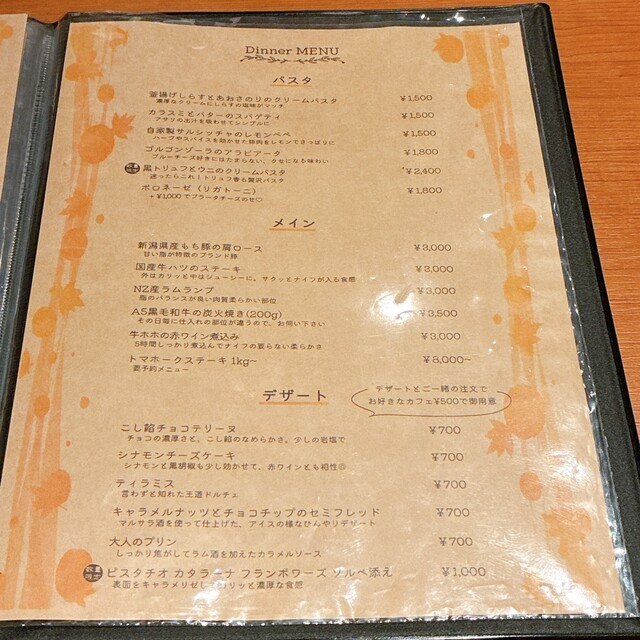 Dinner MENU
パスタ
釜揚げしらすとあおさのりのクリームパスタ ¥1,500
濃厚なクリームにしらすの塩味がマッチ
カラスミとバターのスパゲティ ¥1,500
アサリの出汁を吸わせてシンプルに
自家製サルシッチャのレモンペペ ¥1,500
ハーブやスパイスを効かせた豚肉をレモンでさっぱりに
ゴルゴンゾーラのアラビアータ ¥1,800
ブルーチーズ好きにはたまらない、クセになる味わい
黒トリュフとウニのクリームパスタ ¥2,400
迷ったらこれ!トリュフ香る贅沢パスタ
ボロネーゼ(リガトーニ) ¥1,800
+¥1,000でブラータチーズのせ♡
メイン
新潟県産もち豚の肩ロース ¥3,000
甘い脂が特徴のブランド豚
国産牛ハツのステーキ ¥3,000
外はカリッと中はジューシーに。サクッとナイフが入る食感
NZ産ラムランプ ¥3,000
脂のバランスが良い肉質柔らかい部位
A5黒毛和牛の炭火焼き(200g) ¥3,500
その日毎に仕入れの部位が違うので、お伺い下さい
牛ホホの赤ワイン煮込み ¥3,000
5時間しっかり煮込んでナイフの要らない柔らかさ
トマホークステーキ 1kg~ ¥8,000~
要予約メニュー
デザート
デザートとご一緒の注文で
お好きなカフェ¥500で御用意
こし餡チョコテリーヌ ¥700
チョコの濃厚さと、こし餡のなめらかさ。少しの岩塩で
シナモンチーズケーキ ¥700
シナモンと黒胡椒も少し効かせて、赤ワインとも相性◎
ティラミス ¥700
言わずと知れた王道ドルチェ
キャラメルナッツとチョコチップのセミフレッド ¥700
マルサラ酒を使って仕上げた、アイスの様なひんやりデザート
大人のプリン ¥700
しっかり焦がしてラム酒を加えたカラメルソース
数量限定 ピスタチオ カタラーナ フランボワーズ ソルベ添え ¥1,000
表面をキャラメリゼしてカリッと濃厚な食感